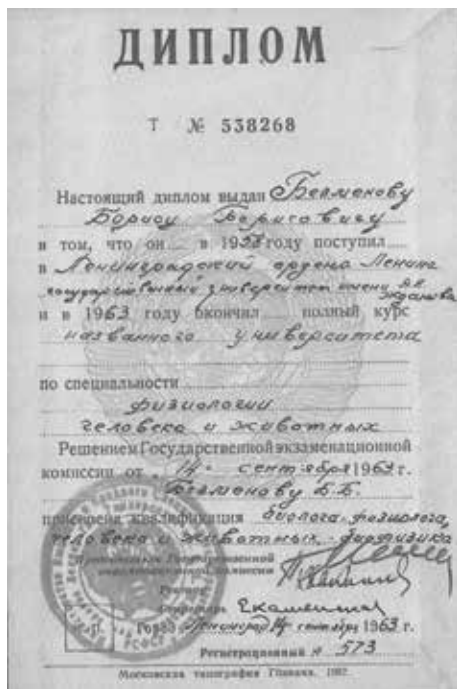 ДИПЛОМ
Т № 538268
Настоящий диплом выдан
Борису Борисовичу
в том, что он в 1958 году поступил
в Ленинградский ордена Ленина
государственный университет имени А.А. Жданова
и в 1963 году окончил полный курс
названного университета
по специальности
физиологии
человека и животных
Решением Государственной экзаменационной
комиссии от 14 сентября 1963 г.
Б.Б.
присвоена квалификация биолога-физиолога
человека и животных - биофизика
Председатель Государственной
экзаменационной комиссии
Ректор
Секретарь
Город Ленинград 14 сентября 1963 г.
Регистрационный № 573
Московская типография Гознака. 1962.